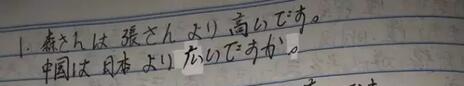 1. 森さんは張さんより高いです。
中国は日本より広いですか。